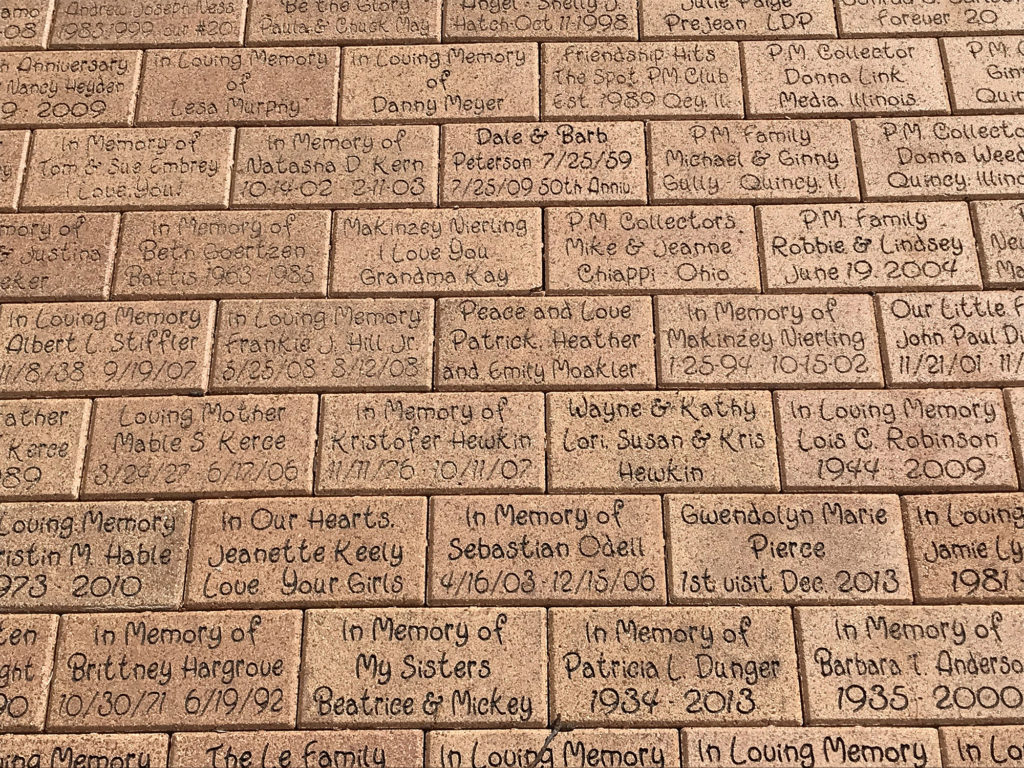 Andrew Joseph Ness
1983 1999 our #20
Be the Glory
Paula & Chuck May
Angel - Shelly J.
Hatch-Oct 11-1998
Julie Paige
Prejean LDP
Forever 20
Anniversary
Nancy Heyder
9 2009
In Loving Memory
of
Lesa Murphy
In Loving Memory
of
Danny Meyer
Friendship Hits
The Spot P.M. Club
Est. 1989 Qcy. Il.
P.M. Collector
Donna Link
Media, Illinois
P.M.
In Memory of
Tom & Sue Embrey
I Love You!
In Memory of
Natasha D. Kern
10-14-02 - 2-11-03
Dale & Barb
Peterson 7/25/59
7/25/09 50th Anniv.
P.M. Family
Michael & Ginny
Gully Quincy, Il.
P.M. Collector
Donna Weed
Quincy, Illino
mory of
& Justina
eker
In Memory of
Beth Goertzen
Battis 1963-1985
Makinzey Nierling
I Love You
Grandma Kay
P.M. Collectors
Mike & Jeanne
Chiappi - Ohio
P.M. Family
Robbie & Lindsey
June 19, 2004
In Loving Memory
Albert L. Stiffler
11/8/38 9/19/07
In Loving Memory
Frankie J. Hill Jr.
3/25/08 8/12/08
Peace and Love
Patrick, Heather
and Emity Moakler
In Memory of
Makinzey Nierling
1-25-94 10-15-02
Our Little
John Paul
11/21/01 11/
ather
Kerce
989
Loving Mother
Mable S. Kerce
3/24/27 6/17/06
In Memory of
Kristofer Hewkin
11/11/76 - 10/11/07
Wayne & Kathy
Lori, Susan & Kris
Hewkin
In Loving Memory
Lois C. Robinson
1944 - 2009
Loving Memory
ristin M. Hable
973 2010
In Our Hearts,
Jeanette Keely
Love, Your Girls
In Memory of
Sebastian Odell
4/16/03 - 12/15/06
Gwendolyn Marie
Pierce
1st visit Dec. 2013
In Loving
Jamie Ly
1981
ten
ght
90
In Memory of
Brittney Hargrove
10/30/71 6/19/92
In Memory of
My Sisters
Beatrice & Mickey
In Memory of
Patricia L. Dunger
1934 - 2013
In Memory of
Barbara T. Anderso
1935 - 2000
ing Memory
The Le Family
In Loving Memory
In Loving Memory
In Lo